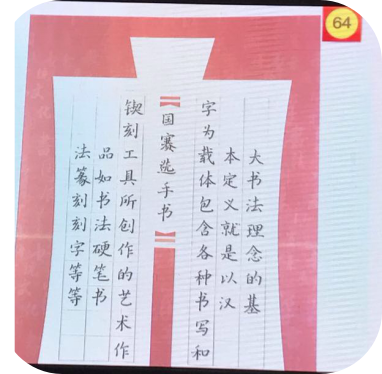 64
大书法理念的基
本定义就是以汉
字为载体包含各种书写和
【国赛选手书】
锲刻工具所创作的艺术作
品如书法硬笔书
法篆刻刻字等等